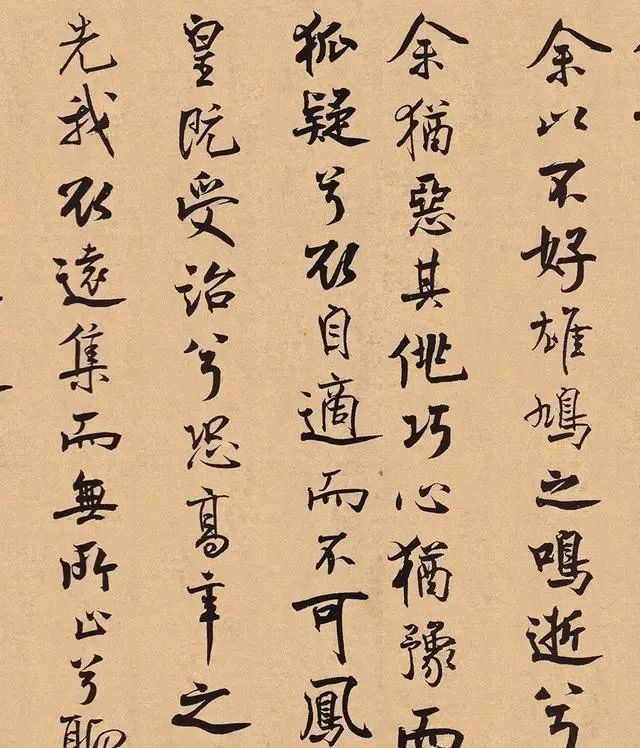 余以不好雄鳩之鳴逝兮
余猶惡其佻巧心猶豫而
狐疑兮欲自適而不可鳳
皇既受詒兮恐高辛之
先我欲遠集而無所止兮聊